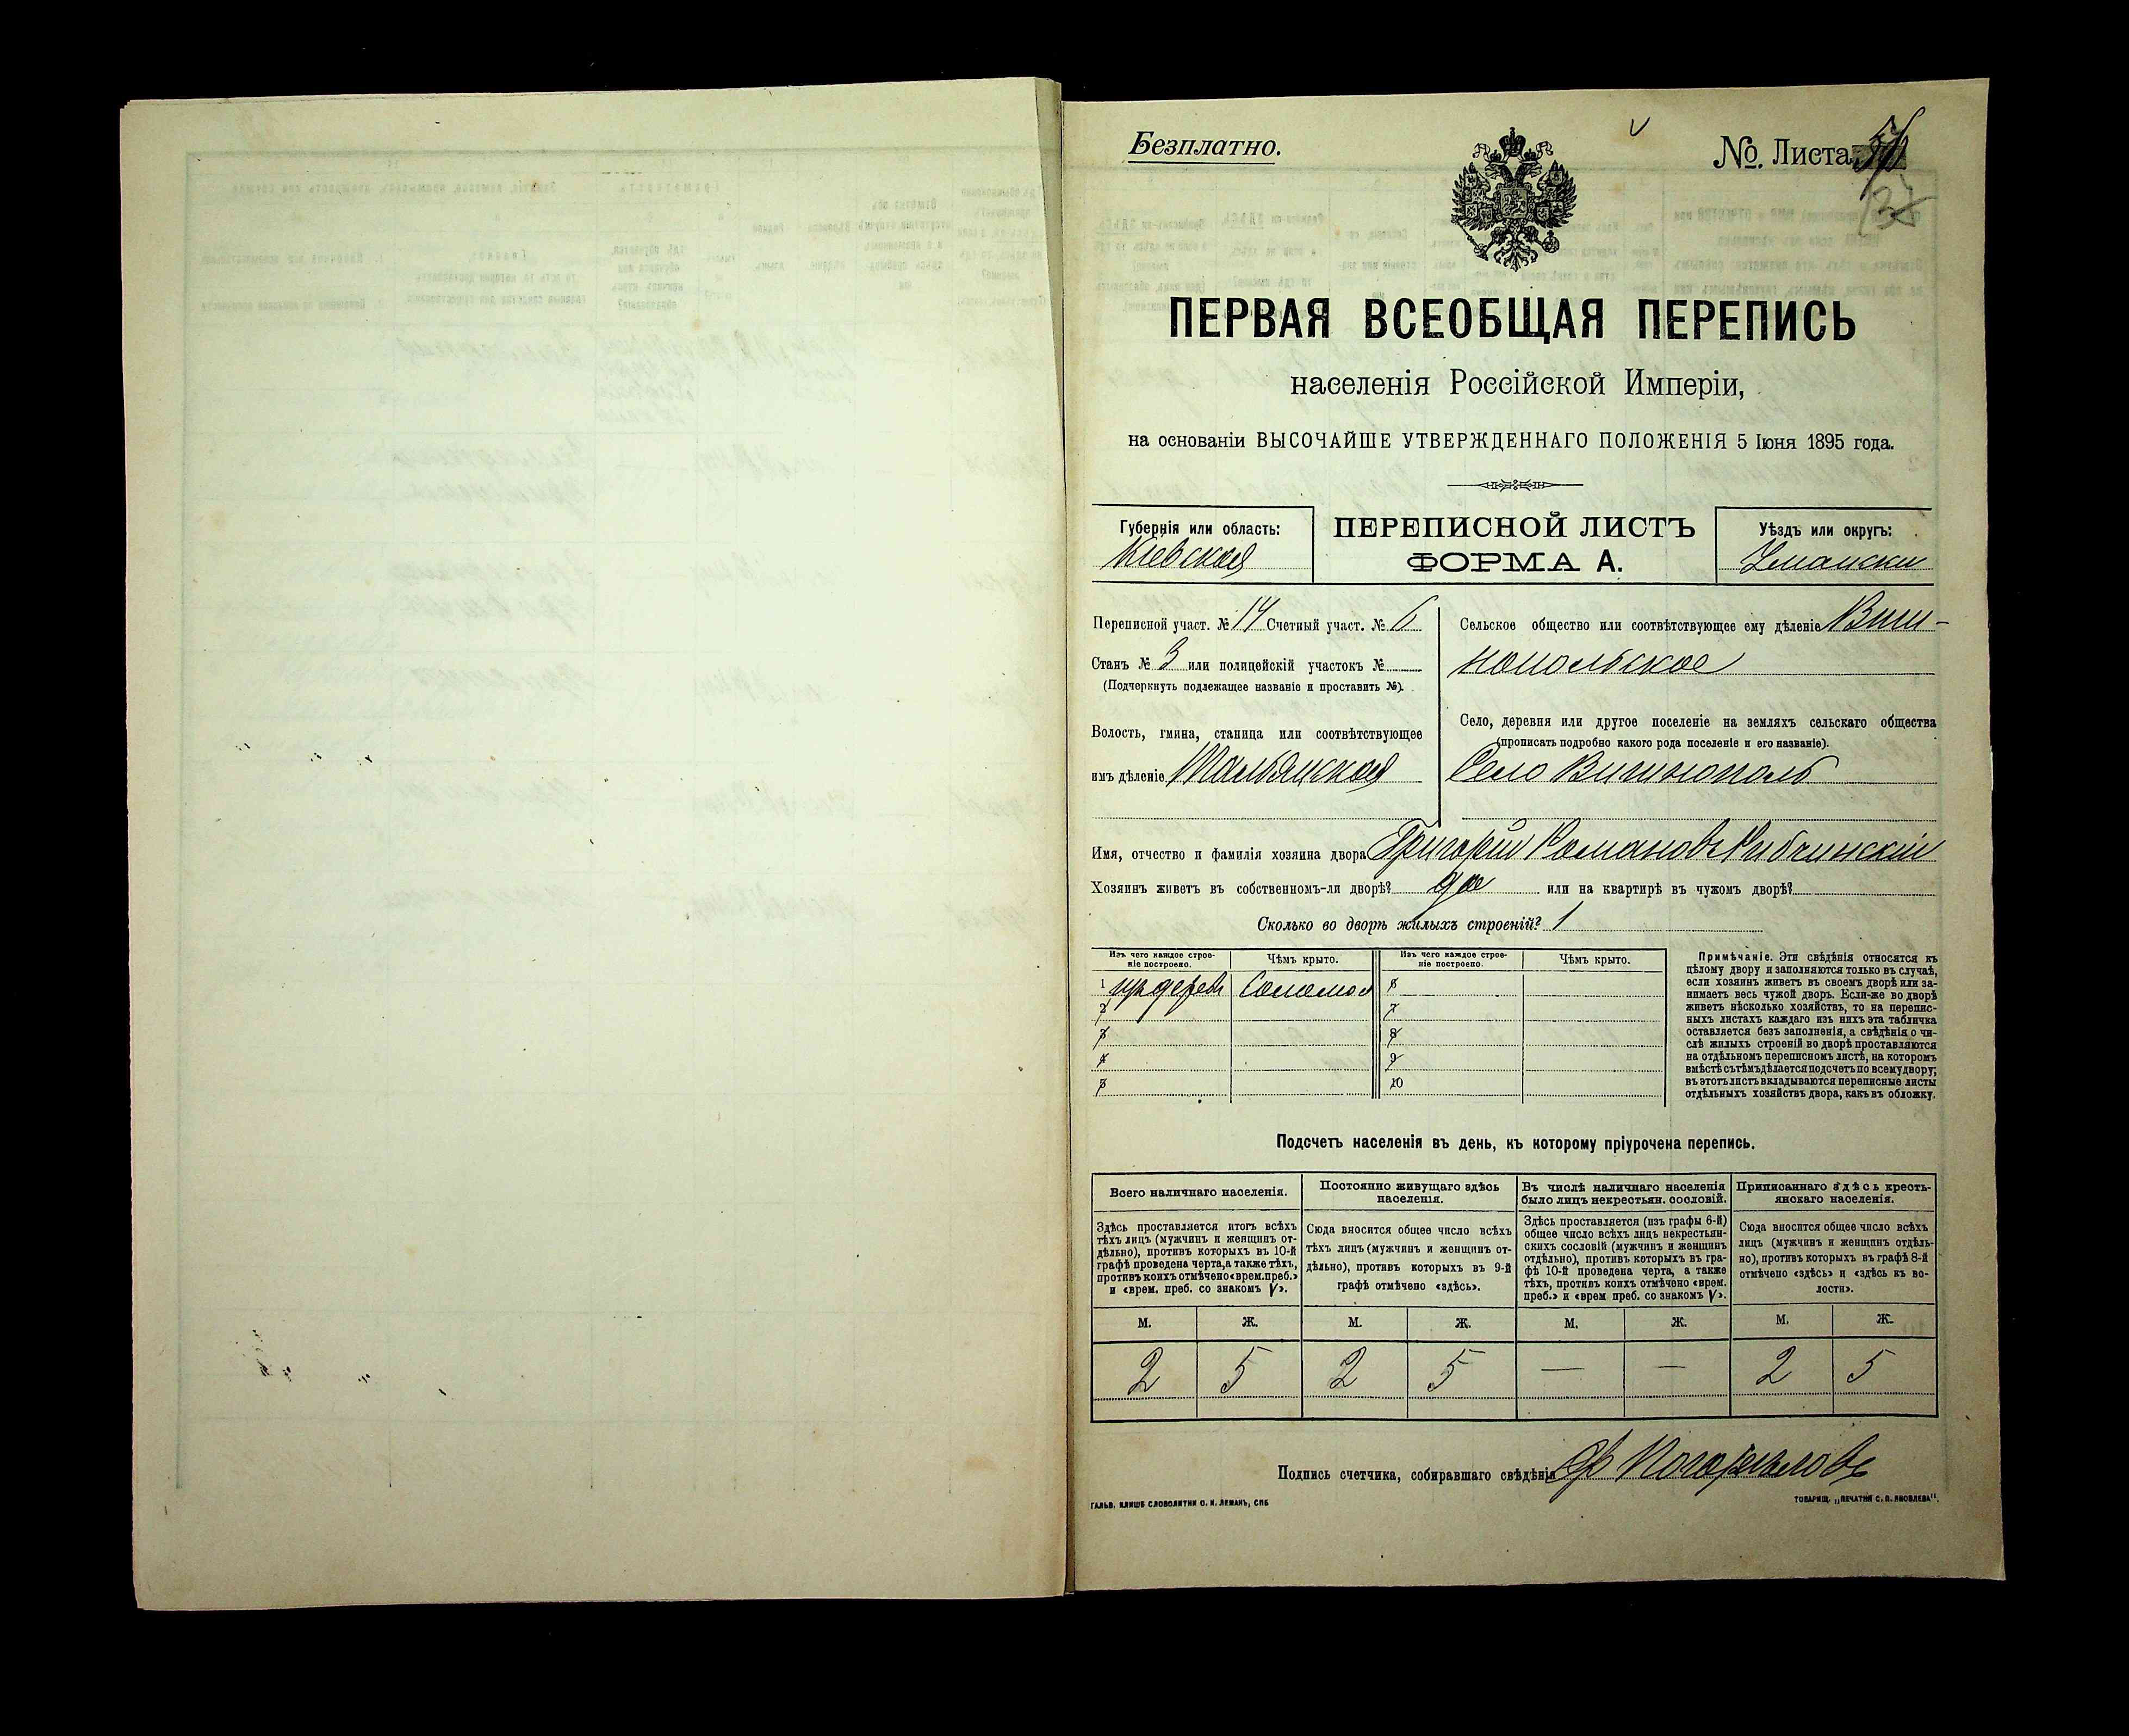 Безплатно.
№. Листа
ПЕРВАЯ ВСЕОБЩАЯ ПЕРЕПИСЬ
населенія Россійской Имперіи,
на основаніи ВЫСОЧАЙШЕ УТВЕРЖДЕННАГО ПОЛОЖЕНІЯ 5 Іюня 1895 года.
Губернія или область:
Кіевская
ПЕРЕПИСНОЙ ЛИСТЪ
ФОРМА А.
Уѣздъ или округъ:
Умански
Переписной участ. № 14 Счетный участ. № 6
Станъ № 3 или полицейскій участокъ №
(Подчеркнуть подлежащее названіе и проставить №).
Волость, гмина, станица или соотвѣтствующее
имъ дѣленіе Тальянская
Сельское общество или соотвѣтствующее ему дѣленіе Виш-
нопольское
Село, деревня или другое поселеніе на земляхъ сельскаго общества
(прописать подробно какого рода поселеніе и его названіе).
Село Вишнополь
Имя, отчество и фамилія хозяина двора Григорій Романовъ
Хозяинъ живетъ въ собственномъ-ли дворѣ? да или на квартирѣ въ чужомъ дворѣ?
Сколько во дворѣ жилыхъ строеній? 1
Изъ чего каждое строе-
ніе построено.
Чѣмъ крыто.
Изъ чего каждое строе-
ніе построено.
Чѣмъ крыто.
1 изъ дерева Соломой 6
2 7
3 8
4 9
5 10
Примѣчаніе. Эти свѣдѣнія относятся къ
цѣлому двору и заполняются только въ случаѣ,
если хозяинъ живетъ въ своемъ дворѣ или за-
нимаетъ весь чужой дворъ. Если-же во дворѣ
живетъ нѣсколько хозяйствъ, то на перепис-
ныхъ листахъ каждаго изъ нихъ эта табличка
оставляется безъ заполненія, а свѣдѣнія о чи-
слѣ жилыхъ строеній во дворѣ проставляются
на отдѣльномъ переписномъ листѣ, на которомъ
вмѣстѣ съ тѣмъ дѣлается подсчетъ по всему двору;
въ этотъ листъ вкладываются переписные листы
отдѣльныхъ хозяйствъ двора, какъ въ обложку.
Подсчетъ населенія въ день, къ которому пріурочена перепись.
Всего наличнаго населенія.
Здѣсь проставляется итогъ всѣхъ
тѣхъ лицъ (мужчинъ и женщинъ от-
дѣльно), противъ которыхъ въ 10-й
графѣ проведена черта, а также тѣхъ,
противъ коихъ отмѣчено «врем. преб.»
и «врем. преб. со знакомъ V».
Постоянно живущаго здѣсь
населенія.
Сюда вносится общее число всѣхъ
тѣхъ лицъ (мужчинъ и женщинъ от-
дѣльно), противъ которыхъ въ 9-й
графѣ отмѣчено «здѣсь».
Въ числѣ наличнаго населенія
было лицъ некрестьян. сословій.
Здѣсь проставляется (изъ графы 6-й)
общее число всѣхъ лицъ некрестьян-
скихъ сословій (мужчинъ и женщинъ
отдѣльно), противъ которыхъ въ гра-
фѣ 10-й проведена черта, а также
тѣхъ, противъ коихъ отмѣчено «врем.
преб.» и «врем преб. со знакомъ V».
Приписаннаго здѣсь кресть-
янскаго населенія.
Сюда вносится общее число всѣхъ
лицъ (мужчинъ и женщинъ отдѣль-
но), противъ которыхъ въ графѣ 8-й
отмѣчено «здѣсь» и «здѣсь къ во-
лости».
М. Ж. М. Ж. М. Ж. М. Ж.
2 5 2 5 — — 2 5
Подпись счетчика, собиравшаго свѣдѣнія
ГАЛЬВ. КЛИШЕ СЛОВОЛИТНИ О. И. ЛЕМАНЪ, СПБ
ТОВАРИЩ. „ПЕЧАТНЯ С. П. ЯКОВЛЕВА".